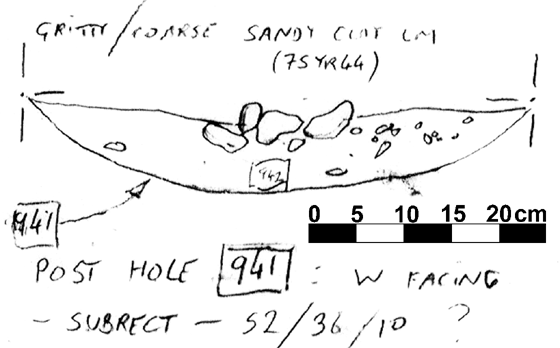 GRITTY/COARSE SANDY CLAY LM
(75YR44)
942
941
0 5 10 15 20cm
POST HOLE 941 : W FACING
- SUBRECT - 52/36/10 ?